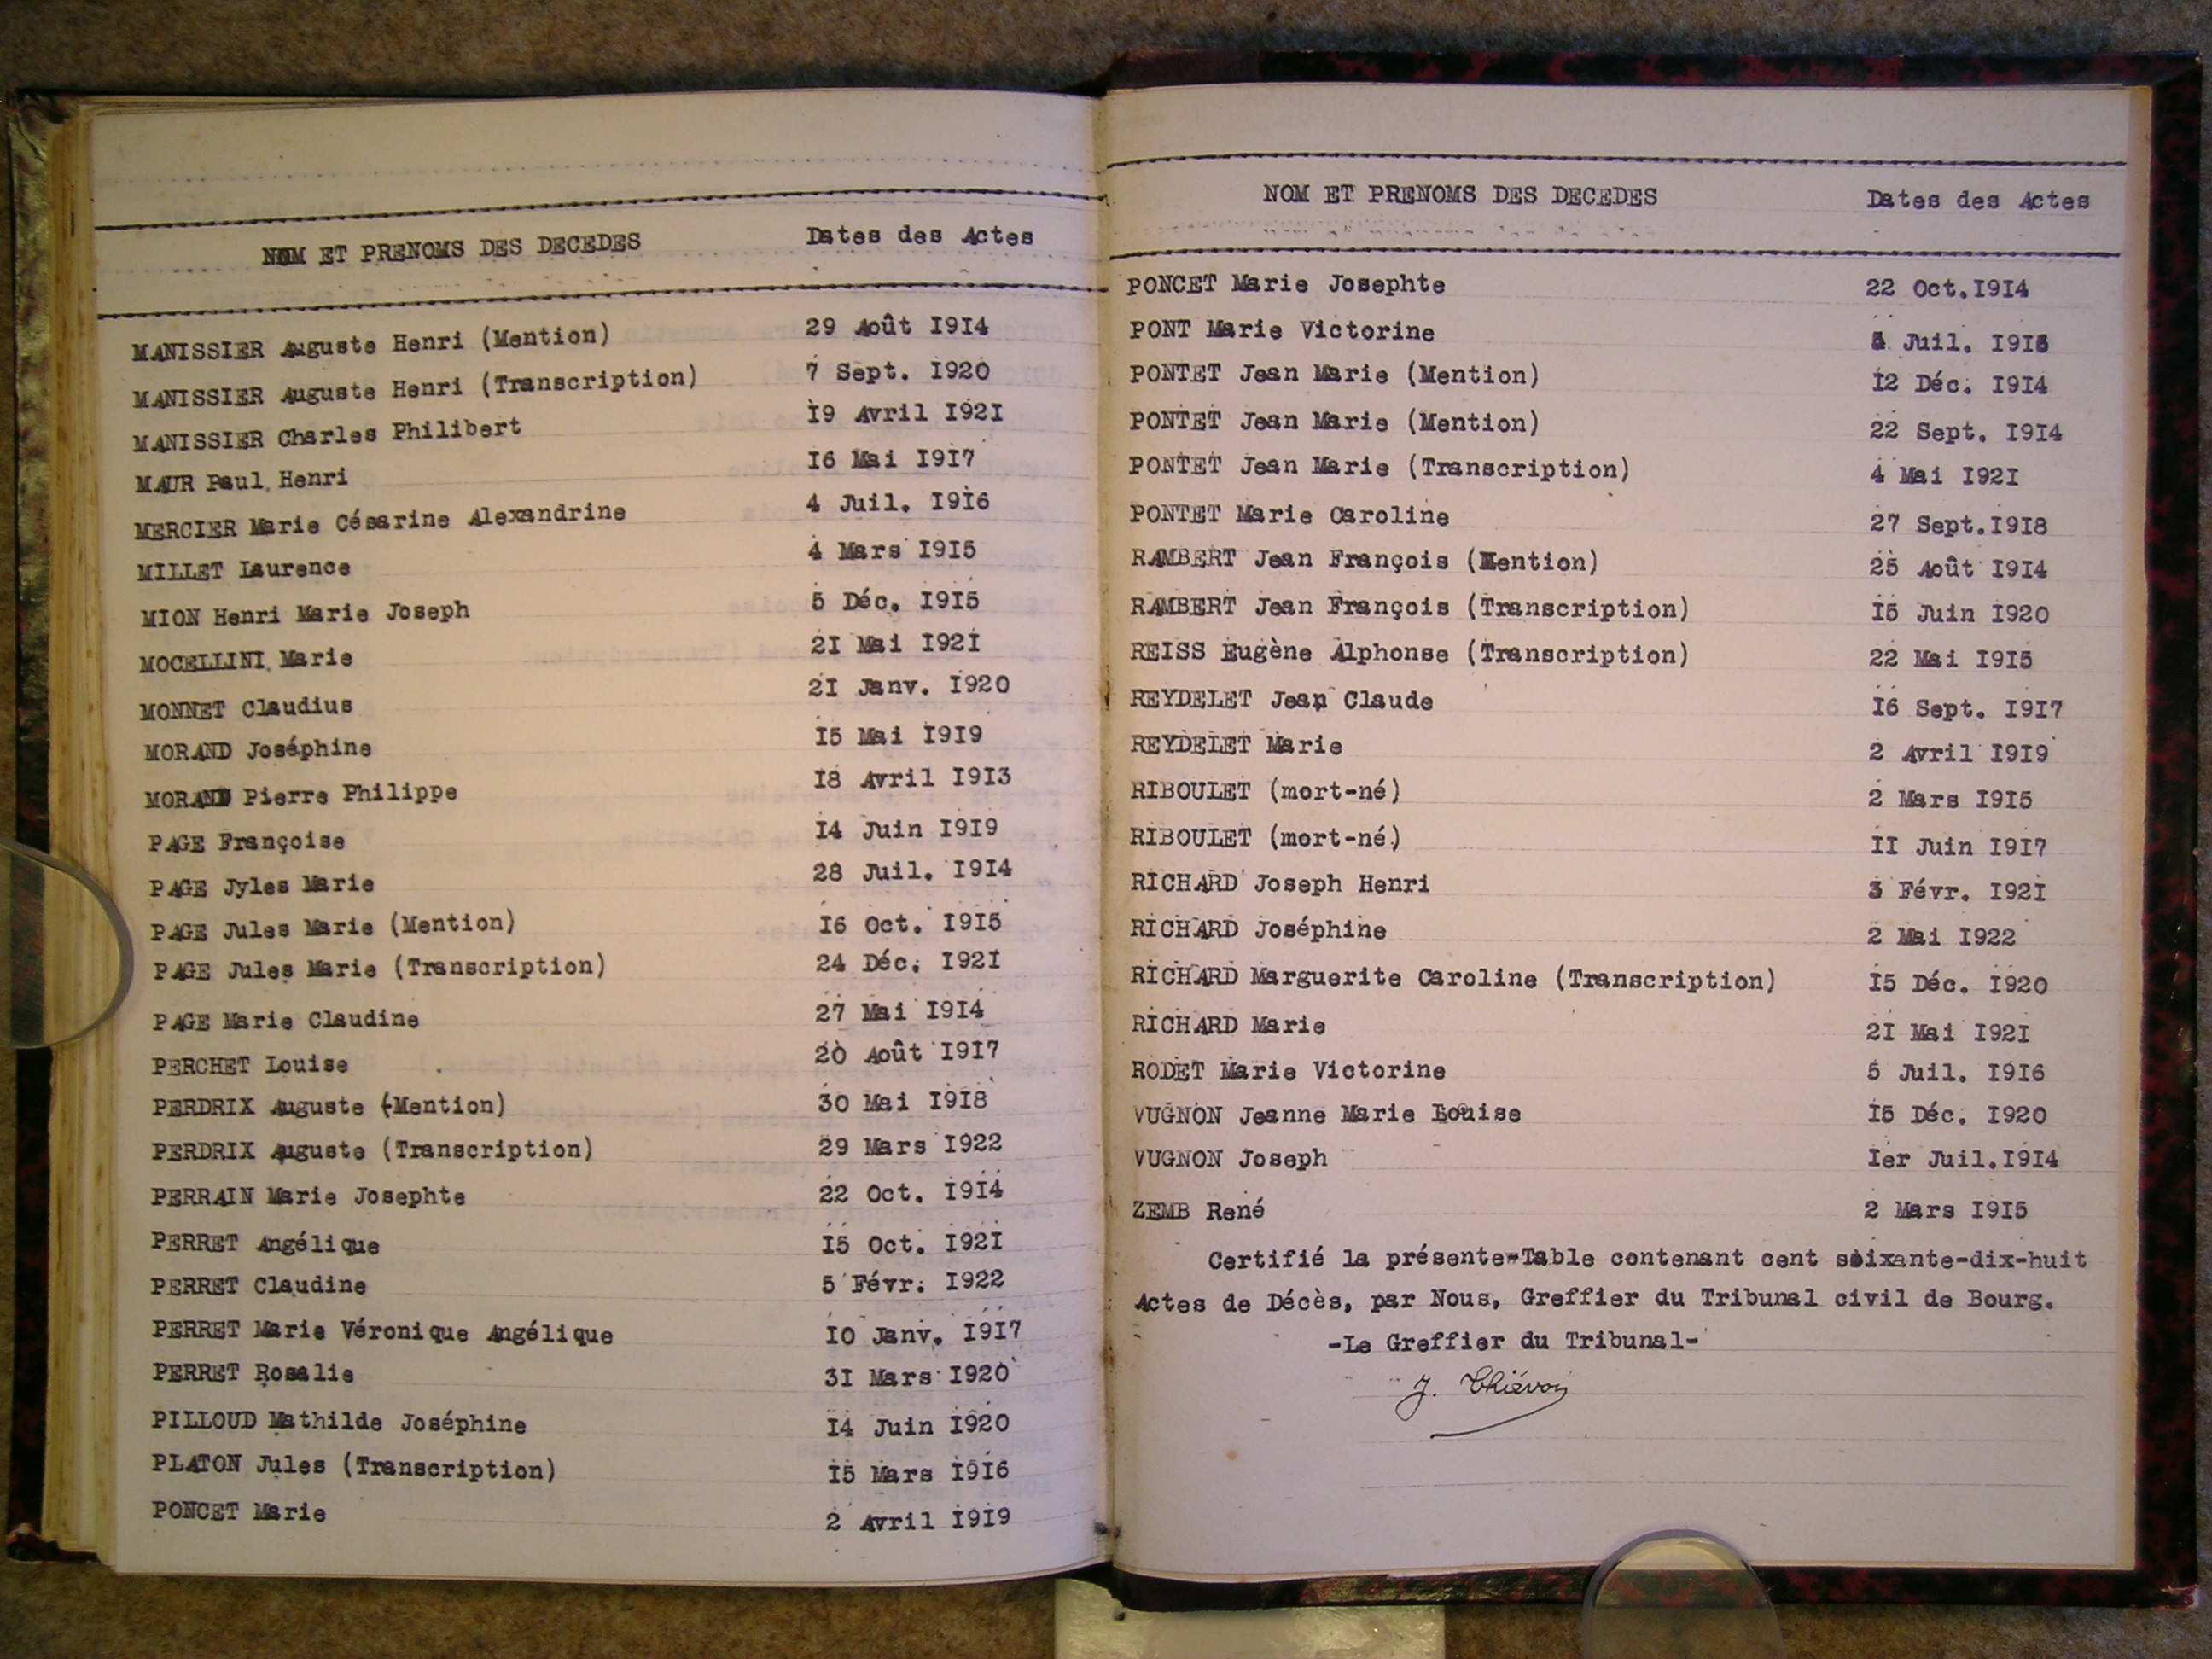 NOM ET PRENOMS DES DECEDES Dates des Actes
MANISSIER Auguste Henri (Mention) 29 Août I9I4
MANISSIER Auguste Henri (Transcription) 7 Sept. I920
MANISSIER Charles Philibert I9 Avril I92I
MAUR Paul Henri I6 Mai I9I7
MERCIER Marie Césarine Alexandrine 4 Juil. I9I6
MILLET Laurence 4 Mars I9I5
MION Henri Marie Joseph 5 Déc. I9I5
MOCELLINI Marie 2I Mai I92I
MONNET Claudius 2I Janv. I920
MORAND Joséphine I5 Mai I9I9
MORAND Pierre Philippe I8 Avril I9I3
PAGE Françoise I4 Juin I9I9
PAGE Jyles Marie 28 Juil. I9I4
PAGE Jules Marie (Mention) I6 Oct. I9I5
PAGE Jules Marie (Transcription) 24 Déc. I92I
PAGE Marie Claudine 27 Mai I9I4
PERCHET Louise 20 Août I9I7
PERDRIX Auguste (Mention) 30 Mai I9I8
PERDRIX Auguste (Transcription) 29 Mars I922
PERRAIN Marie Josephte 22 Oct. I9I4
PERRET Angélique I5 Oct. I92I
PERRET Claudine 5 Févr. I922
PERRET Marie Véronique Angélique I0 Janv. I9I7
PERRET Rosalie 3I Mars I920
PILLOUD Mathilde Joséphine I4 Juin I920
PLATON Jules (Transcription) I5 Mars I9I6
PONCET Marie 2 Avril I9I9
NOM ET PRENOMS DES DECEDES Dates des Actes
PONCET Marie Josephte 22 Oct.I9I4
PONT Marie Victorine Juil.
PONTET Jean Marie (Mention) I2 Déc. I9I4
PONTET Jean Marie (Mention) 22 Sept. I9I4
PONTET Jean Marie (Transcription) 4 Mai I92I
PONTET Marie Caroline 27 Sept.I9I8
RAMBERT Jean François (Mention) 25 Août I9I4
RAMBERT Jean François (Transcription) I5 Juin I920
REISS Eugène Alphonse (Transcription) 22 Mai I9I5
REYDELET Jean Claude I6 Sept. I9I7
REYDELET Marie 2 Avril I9I9
RIBOULET (mort-né) 2 Mars I9I5
RIBOULET (mort-né) II Juin I9I7
RICHARD Joseph Henri 3 Févr. I92I
RICHARD Joséphine 2 Mai I922
RICHARD Marguerite Caroline (Transcription) I5 Déc. I920
RICHARD Marie 2I Mai I92I
RODET Marie Victorine 5 Juil. I9I6
VUGNON Jeanne Marie Louise I5 Déc. I920
VUGNON Joseph Ier Juil.I9I4
ZEMB René 2 Mars I9I5
Certifié la présente-Table contenant cent soixante-dix-huit
Actes de Décès, par Nous, Greffier du Tribunal civil de Bourg.
-Le Greffier du Tribunal-